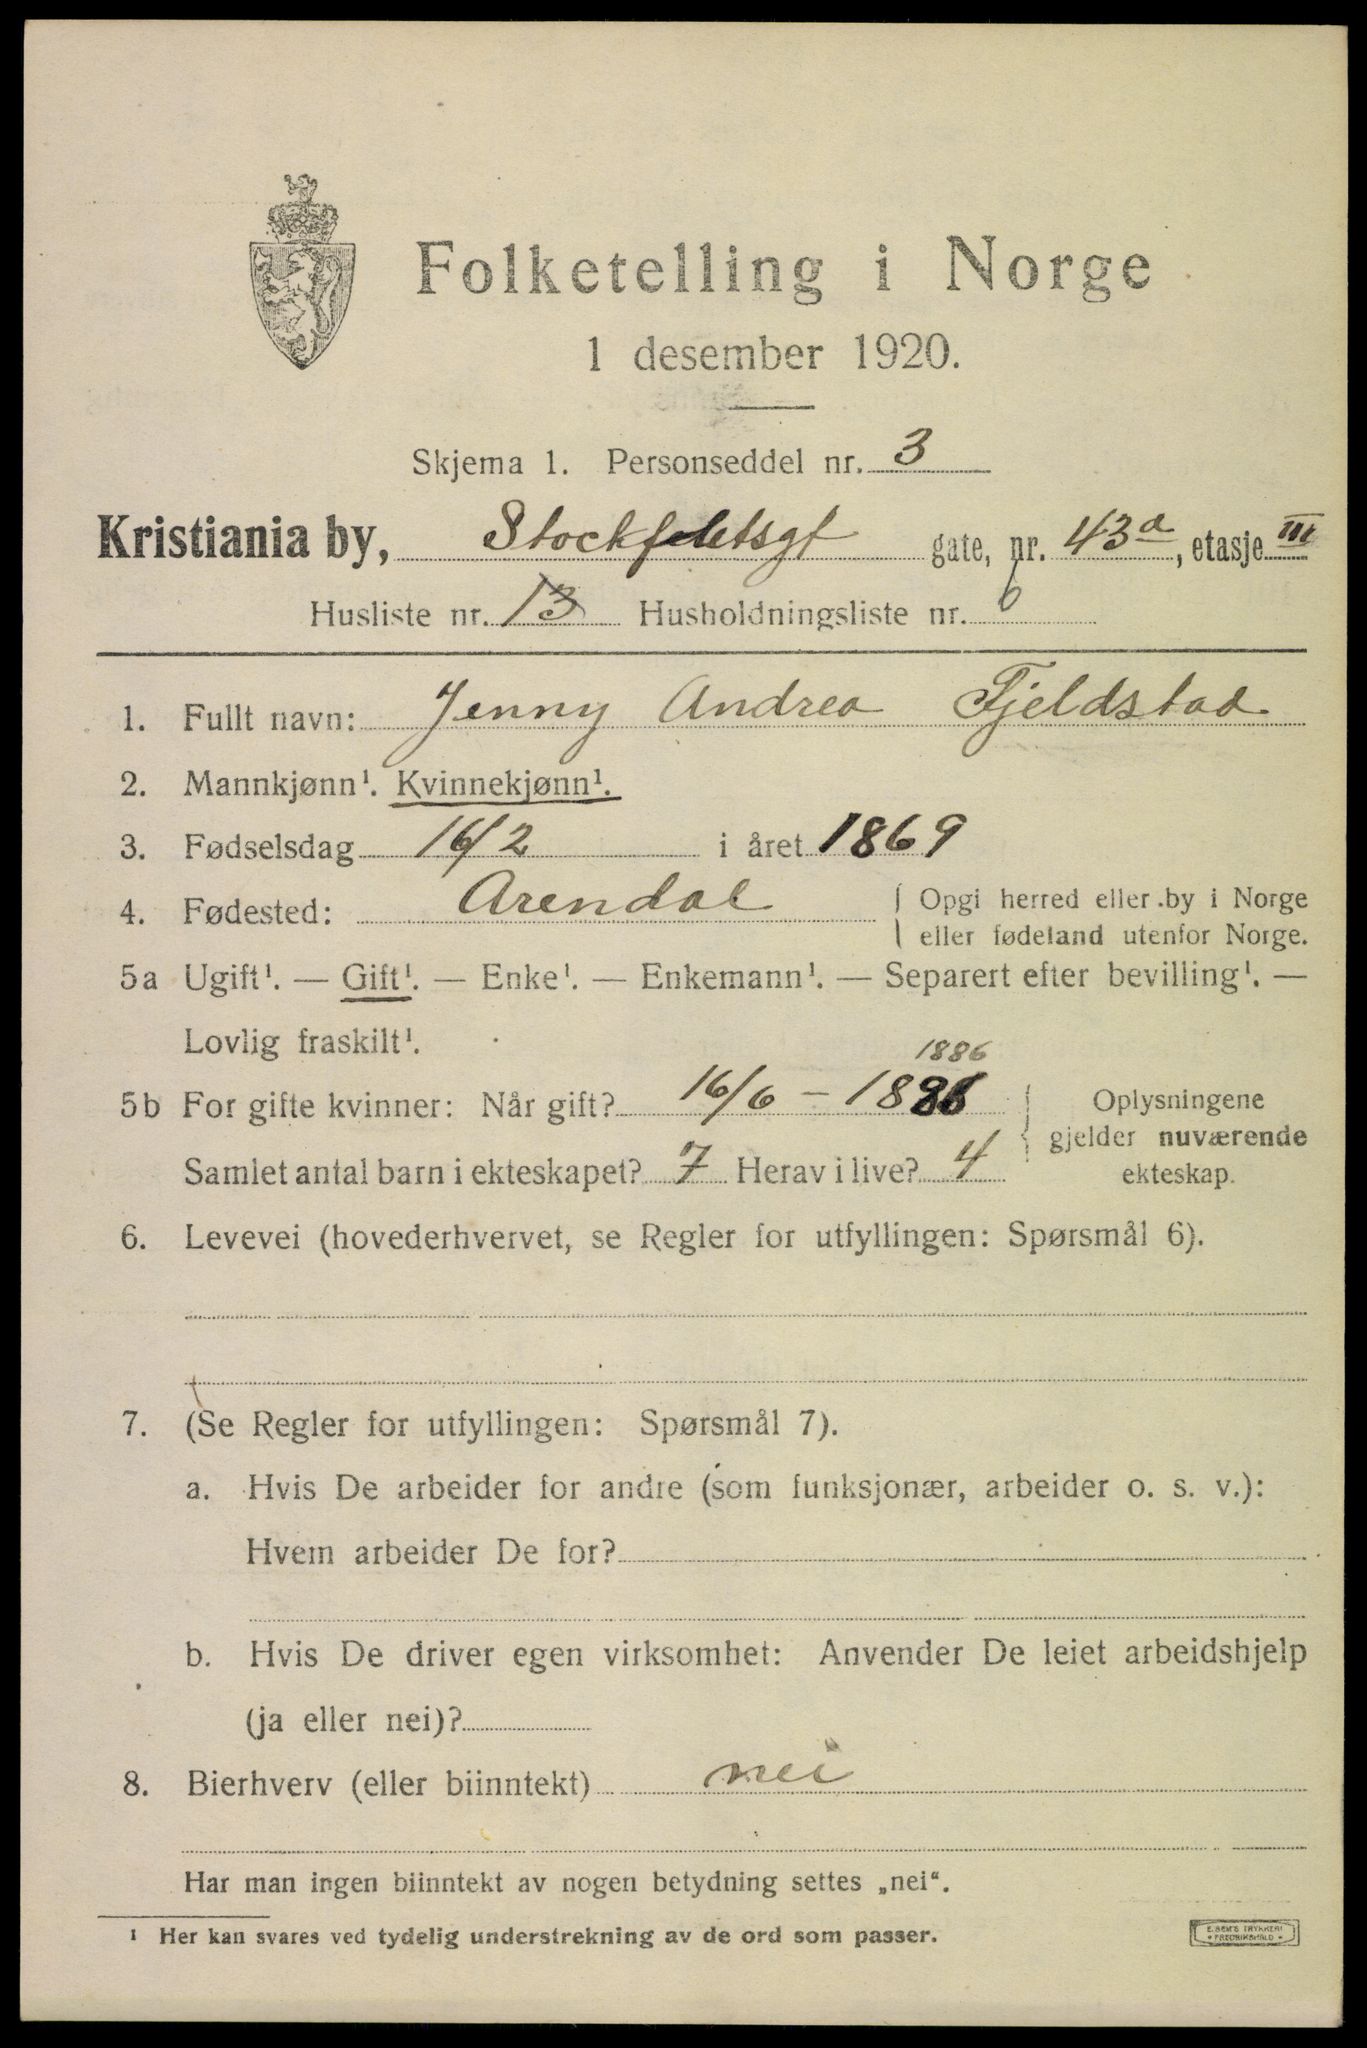 Folketelling i Norge
1 desember 1920.
Skjema 1. Personseddel nr. 3
Kristiania by, Stockfletsgt gate, nr. 43a, etasje III
Husliste nr. 13 Husholdningsliste nr. 6
1. Fullt navn: Jenny Andrea Fjeldstad
2. Mannkjønn¹. Kvinnekjønn¹.
3. Fødselsdag 16/2 i året 1869
4. Fødested: Arendal { Opgi herred eller by i Norge
eller fødeland utenfor Norge.
5a Ugift¹. — Gift¹. — Enke¹. — Enkemann¹. — Separert efter bevilling¹. —
Lovlig fraskilt¹.
1886
5b For gifte kvinner: Når gift? 16/6 - 1886
Samlet antal barn i ekteskapet? 7 Herav i live? 4
Oplysningene
gjelder nuværende
ekteskap.
6. Levevei (hovederhvervet, se Regler for utfyllingen: Spørsmål 6).
7. (Se Regler for utfyllingen: Spørsmål 7).
a. Hvis De arbeider for andre (som funksjonær, arbeider o. s. v.):
Hvem arbeider De for?
b. Hvis De driver egen virksomhet: Anvender De leiet arbeidshjelp
(ja eller nei)?
8. Bierhverv (eller biinntekt) nei
Har man ingen biinntekt av nogen betydning settes „nei“.
¹ Her kan svares ved tydelig understrekning av de ord som passer.
E. SEM'S TRYKKERI
• FREDRIKSHALD •